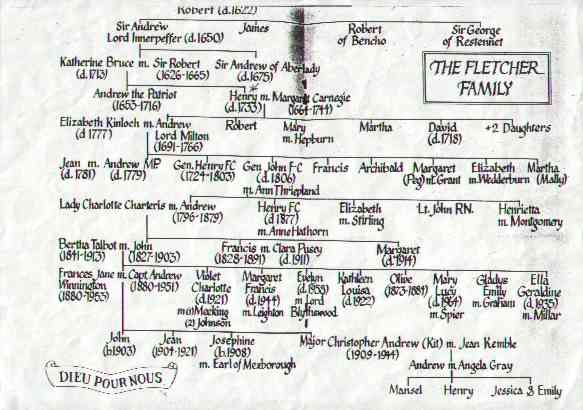 Robert (d.1622)
Sir Andrew James Robert Sir George
Lord Innerpeffer (d.1650) of Bencho of Restennet
Katherine Bruce m. Sir Robert Sir Andrew of Aberlady
(d.1713) (1626-1665) (d.1675)
THE FLETCHER
FAMILY
Andrew the Patriot Henry m. Margaret Carnegie
(1653-1716) (d.1733) (1664-1744)
Elizabeth Kinloch m. Andrew Robert Mary Martha David +2 Daughters
(d 1777) Lord Milton m. Hepburn (d.1718)
(1691-1766)
Jean m. Andrew MP Gen. Henry FC Gen John F-C Francis Archibald Margaret Elizabeth Martha
(d. 1781) (d.1779) (1724-1803) (d.1806) (Peg) m. Grant m. Wedderburn (Mally)
m. Ann Thriepland
Lady Charlotte Charteris m. Andrew Henry FC Elizabeth Lt. John RN. Henrietta
(1796-1879) (d 1877) m. Stirling m. Montgomery
m. Anne Hathorn
Bertha Talbot m. John Francis m. Clara Pusey Margaret
(1841-1913) (1827-1903) (1828-1891) (d.1911) (d.1914)
Frances Jane m. Capt Andrew Violet Margaret Evelyn Kathleen Olive Mary Gladys Ella
Winnington (1880-1951) Charlotte Francis Louisa (1873-1881) Lucy Emily Geraldine
(1880-1953) (d.1921) (d.1944) m. Lord (d.1922) (d.1964) m. Graham (d.1935)
m(1) Macking m. Leighton Blythswood m. Spier m. Millar
(2) Johnson
John Jean Josephine Major Christopher Andrew (Kit) m. Jean Kemble
(b1903) (1904-1921) (b.1908) (1909-1944)
m. Earl of Mexborough Andrew m Angela Gray
DIEU POUR NOUS
Mansel Henry Jessica & Emily